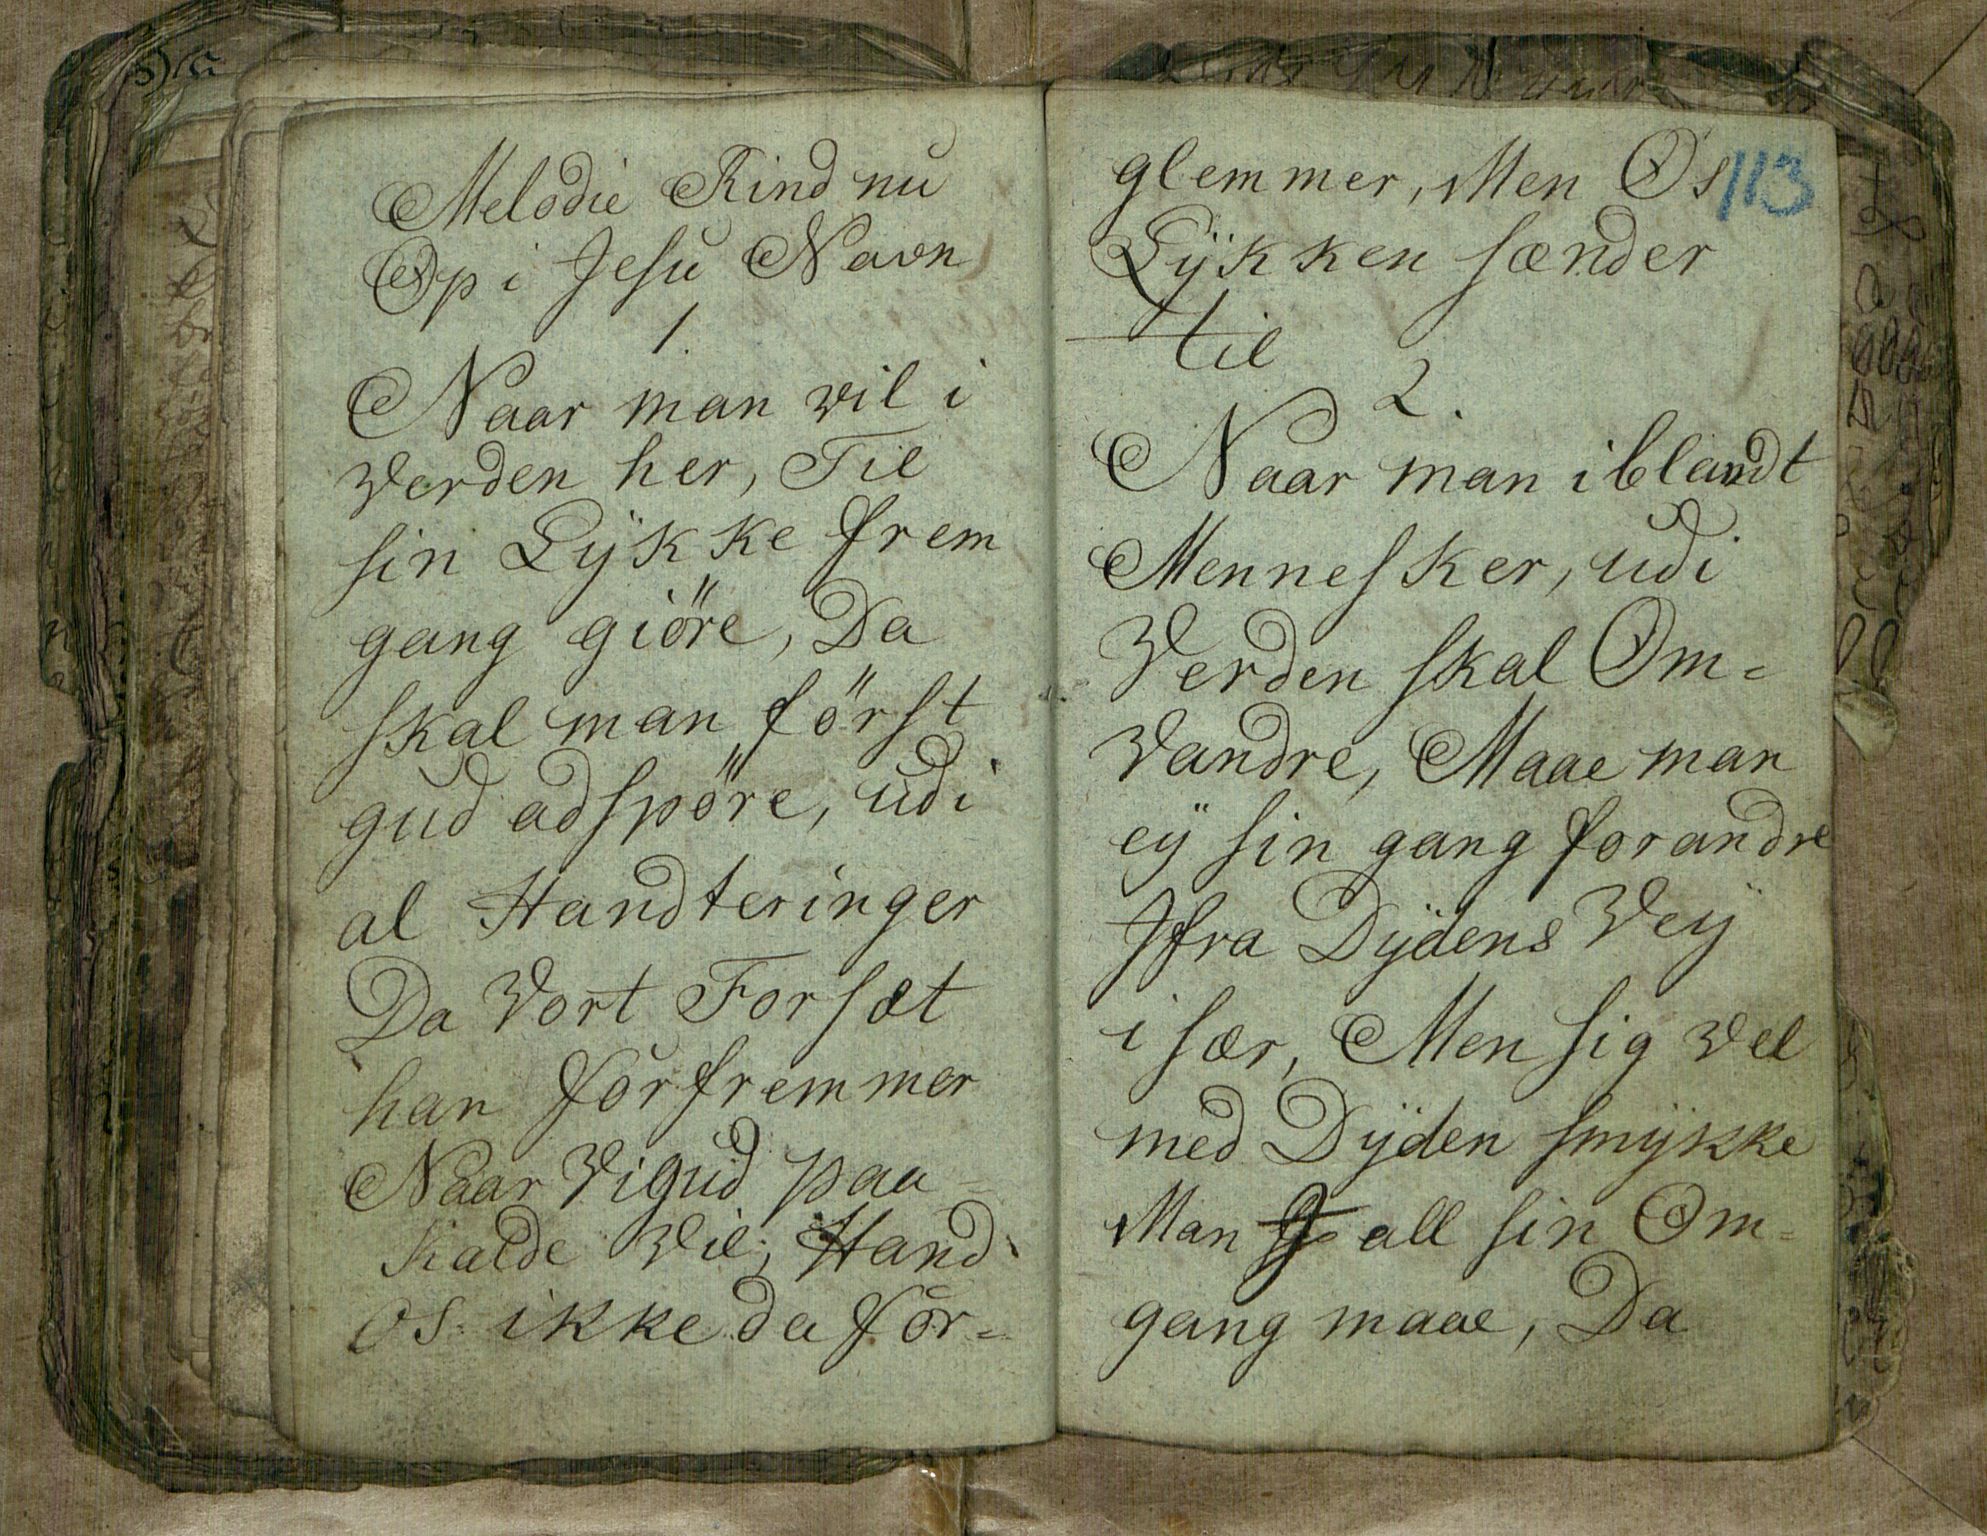 Melodie Rind nu
Op i Jesu Navn
1.
Naar man vil i
Verden her, Til
sin Lÿkke frem
gang giöre, Da
skal man först
gud adspöre, udi
al Handteringer
Da Vort Forsæt
han forfremmer
Naar Vi gud paa
Kalde Vil, Hand
os ikke da for-
glemmer, Men Os
113
Lÿkken sænder
til
2.
Naar man iblandt
Mennesker, udi
Verden skal Om-
Vandre, Maae man
eÿ sin gang forandre
Ifra Dÿdens Veÿ
i sær, Men sig Vel
med Dÿden smÿkke
Man all sin Om-
gang maae, Da